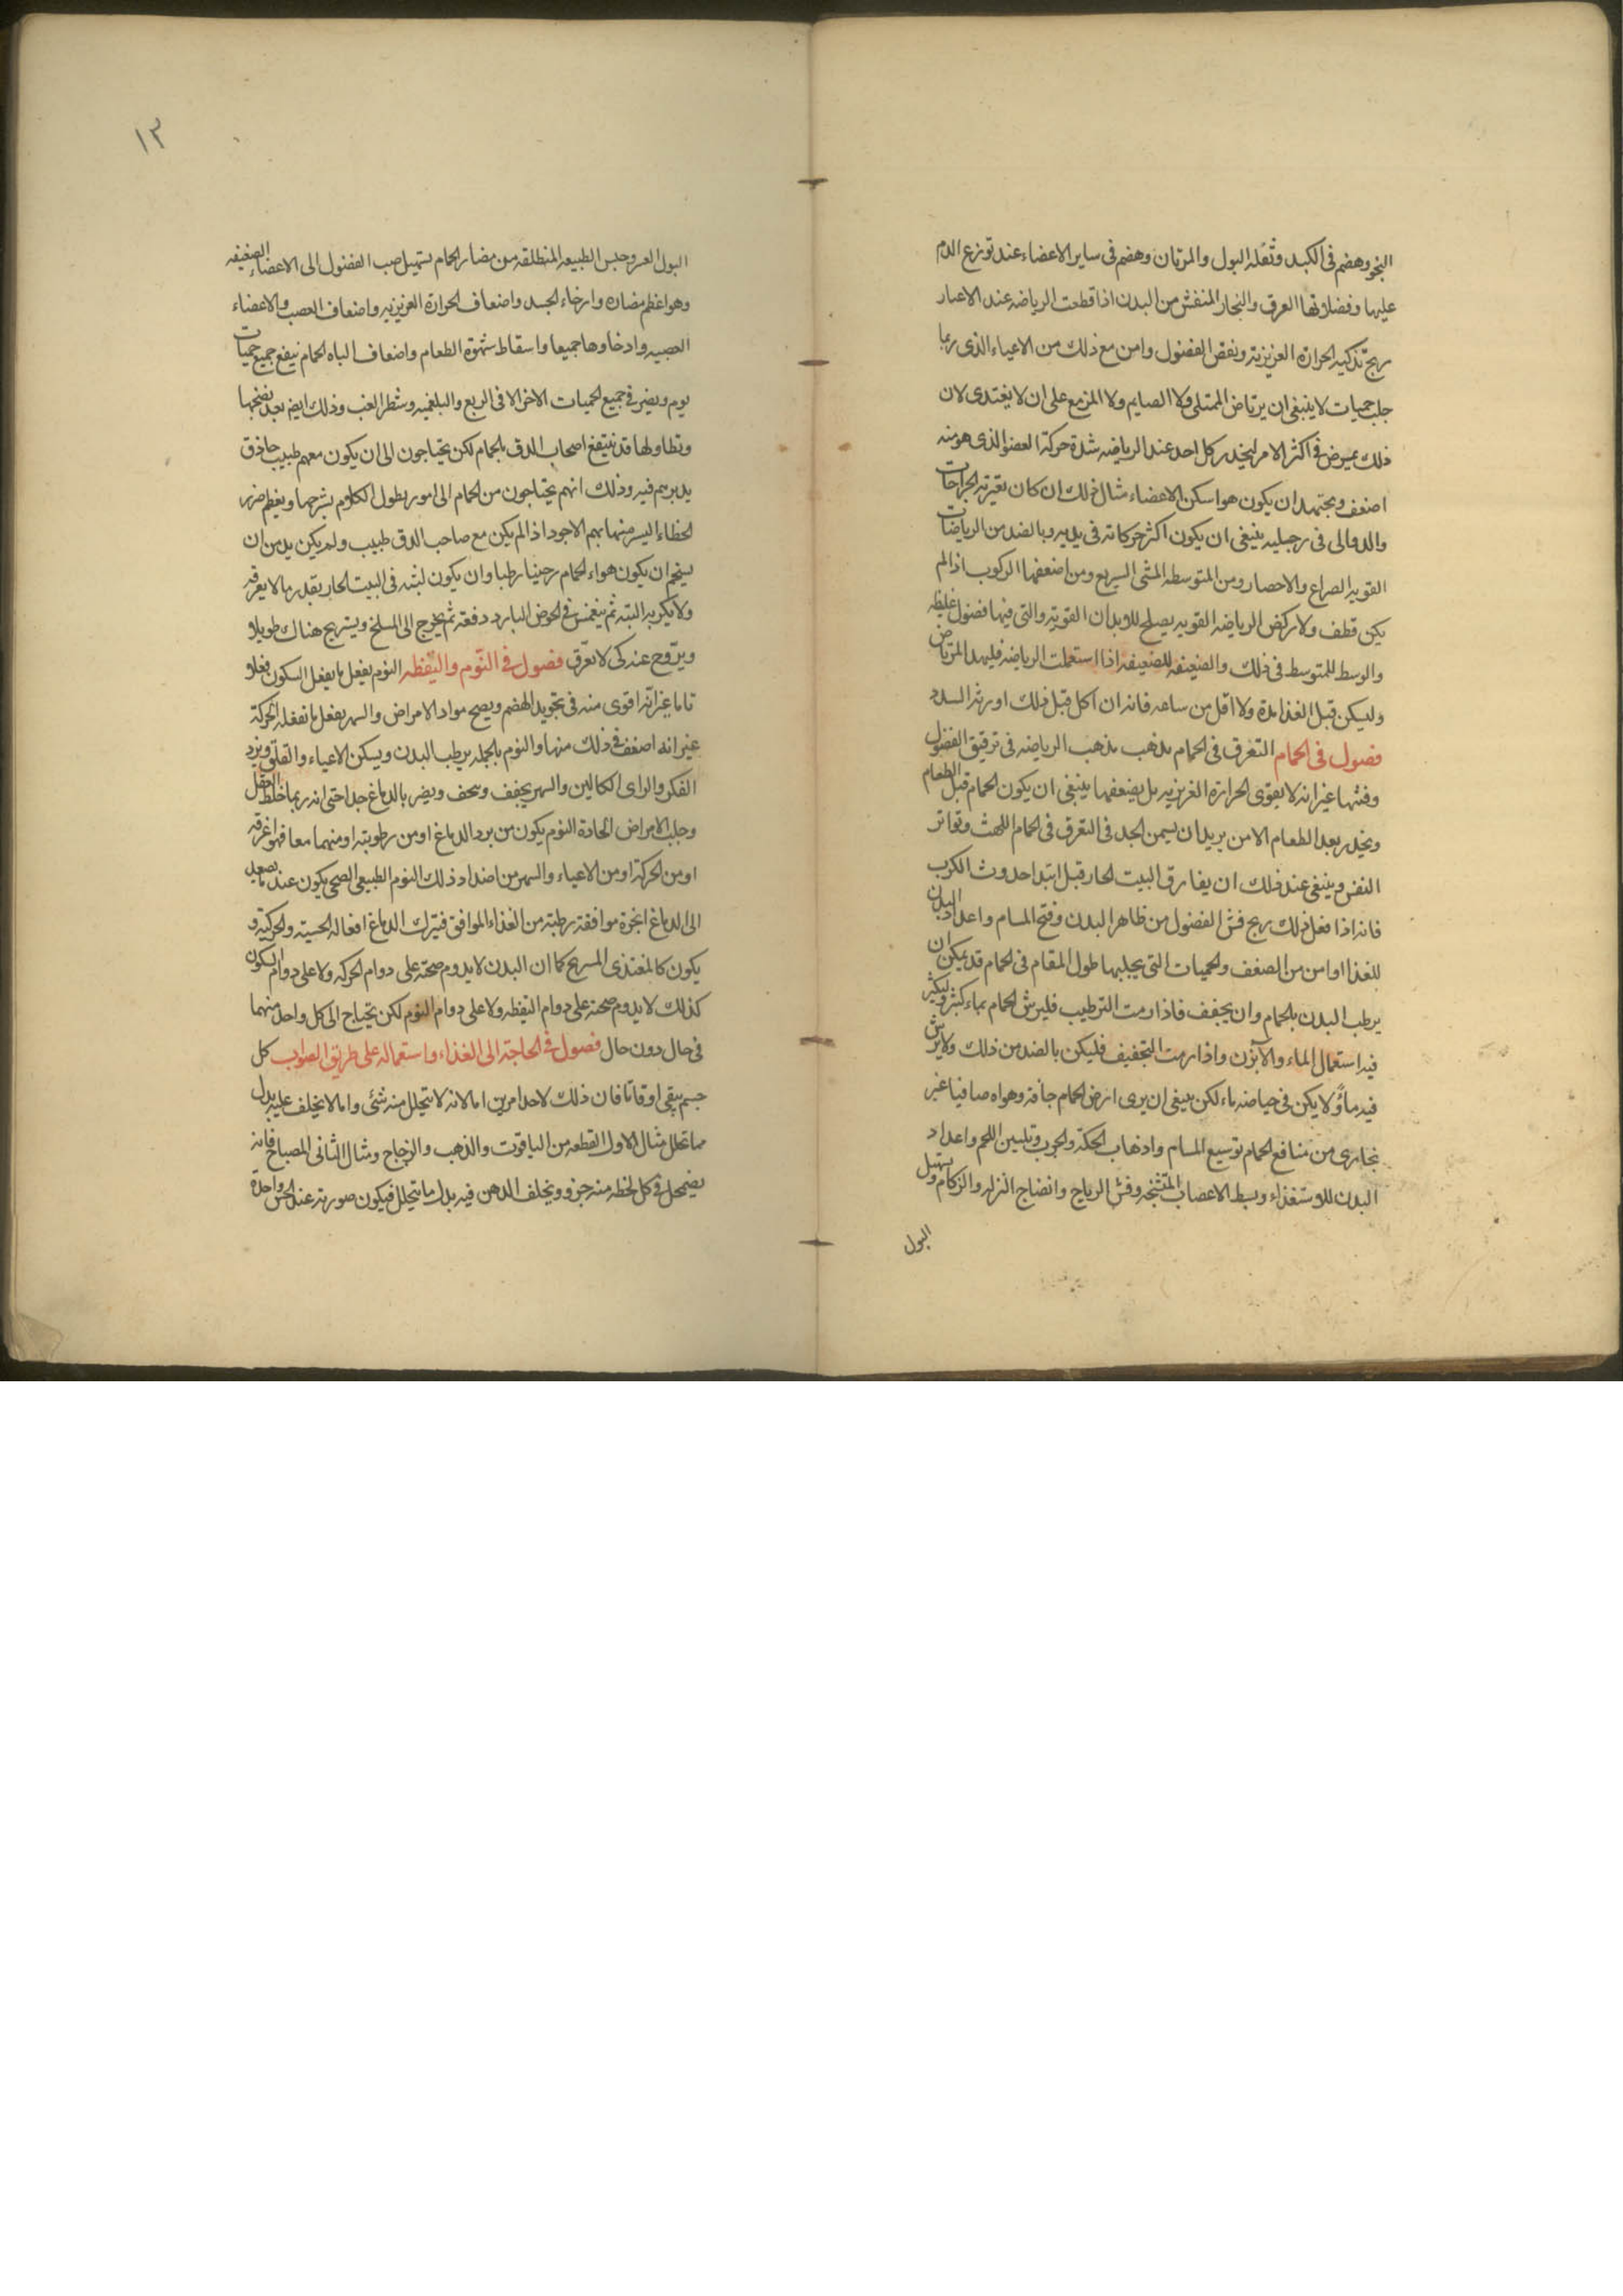 النجو وهضم فى الكبد وثفله البول والمرتان وهضم فى ساير الاعضاء عند توزع الدم
عليها وفضلاتها العرق والبخار المنفش من البدن اذا قطعت الرياضه عند الاعيار
ربح تذكيه الحرارة الغريزية ونفض الفضول وامن مع ذلك من الاعياء الذى ربما
جلب حميات لا ينبغى ان يرتاض الممتلى ولا الصايم ولا المزمع على ان لا يغتدى لان
ذلك يمرض فى اكثر الامر ليحذر كل احد عند الرياضه شدة حركة العضو الذى هو منه
اضعف ويجتهد ان يكون هو اسكن الاعضاء مثال ذلك ان كان تعتريه الجراحات
والدوالى فى رجليه ينبغى ان يكون اكثر حركاته فى يديه وبالضد من الرياضات
القويه الصراع والاحصار ومن المتوسطه المشى السريع ومن اضعفها الركوب اذا لم
يكن قطف ولا ركض الرياضه القويه يصلح للابدان القوية والتى فيها فضول غليظه
والوسط للمتوسط فى ذلك والضعيفه للضعيفه اذا استعملت الرياضه فليهدا المرتاض
وليسكن قبل الغذا مدة ولا اقل من ساعه فانه ان اكل قبل ذلك اورثه السدد
فصول فى الحمام التعرق فى الحمام يذهب مذهب الرياضه فى ترقيق الفضول
وفشها غير انه لا يقوى الحرارة الغريزيه بل يضعفها ينبغى ان يكون الحمام قبل الطعام
ويحذر بعد الطعام الا من يريد ان يسمن الحد فى التعرق فى الحمام اللهث وتواتر
النفس وينبغى عند ذلك ان يفارق البيت الحار قبل ابتدا حدوث الكرب
فانه اذا فعل ذلك ربح فش الفضول من ظاهر البدن وفتح المسام واعداد البدن
للغذا وامن من الضعف والحميات التى يجلبها طول المقام فى الحمام قد يمكن ان
يرطب البدن بالحمام وان يجفف فاذا رمت الترطيب فليرش الحمام بماء كثير وليكثر
فيه استعمال الماء والابزن واذا رمت التجفيف فليكن بالضد من ذلك ولا يرش
فيه ماؤ ولا يكن فى حياضه ماء لكن ينبغى ان يرى ارض الحمام جافة وهواه صافيا غير
بخارى من منافع الحمام توسيع المسام واذهاب الحكة والجرب وتليين اللحم واعداد
البدن للاستغذاء وبسط الاعصاب المتشنجه وفش الرياح وانضاج النزله والزكام وتسهيل
البول
١٣
البول العسر وحبس الطبيعه المنطلقه من مضار الحمام تسهيل صب الفضول الى الاعضاء الضعيفه
وهو اعظم مضاره وارخاء الجسد واضعاف الحرارة الغريزيه واضعاف العصب والاعضاء
العصبيه وارخاوها جميعا واسقاط شهوة الطعام واضعاف الباه الحمام ينفع جميع حميات
يوم ويضر فى جميع الحميات الاخر الا فى الربع والبلغميه وشطر الغب وذلك ايضا بعد نضجها
وتطاولها قد ينتفع اصحاب الدق بالحمام لكن يحتاجون الى ان يكون معهم طبيب حاذق
يدبرهم فيه وذلك انهم يحتاجون من الحمام الى امور يطول الكلام بشرحها ويعظم ضرر
الخطاء اليسير منها بهم الاجود اذا لم يكن مع صاحب الدق طبيب ولم يكن بد من ان
يستحم ان يكون هواء الحمام رطبا وان يكون لبثه فى البيت الحار بقدر ما لا يعرقه
ولا يكربه البتة ثم ينغمس فى الحوض البارد دفعة ثم يخرج الى المسلخ ويستريح هناك طويلا
ويتروح عند كى لا يعرق فصول فى النوم واليقظه النوم يفعل ما يفعل السكون فعلا
تاما غير انه اقوى منه فى تجويد الهضم ويصح مواد الامراض والسهر يفعل ما تفعله الحركة
غير انه اضعف فى ذلك منها والنوم بالجمله يرطب البدن ويسكن الاعياء والقلق ويرد
الفكر والراى الكالين والسهر يجفف وينحف ويضر بالدماغ جدا حتى انه ربما خلط العقل
وجلب الامراض الحادة النوم يكون من برد الدماغ او من رطوبته او منهما معا فهو اغرقه
او من الحركة او من الاعياء والسهر من اضداد ذلك النوم الطبيعى الصحى يكون عند ما يصعد
الى الدماغ ابخرة موافقة رطبة من الغذاء الموافق فيترك الدماغ افعاله الحسية والحركية و
يكون كالمغتذى المستريح كما ان البدن لا يدوم صحته على دوام الحركه ولا على دوام السكون
كذلك لا يدوم صحته على دوام اليقظه ولا على دوام النوم لكن يحتاج الى كل واحد منهما
فى حال دون حال فصول فى الحاجة الى الغذاء واستعماله على طريق الصواب كل
جسم يبقى اوقاتا فان ذلك لاحد امرين اما لانه لا يتحلل منه شئى واما لانه يخلف عليه بدل
مما تحلل مثال الاول القطعه من الياقوت والذهب والزجاج ومثال الثانى المصباح فانه
يضمحل فى كل لحظه منه جزو ويخلف الدهن فيه بدل ما يتحلل فيكون صورته عند الحس واحدة